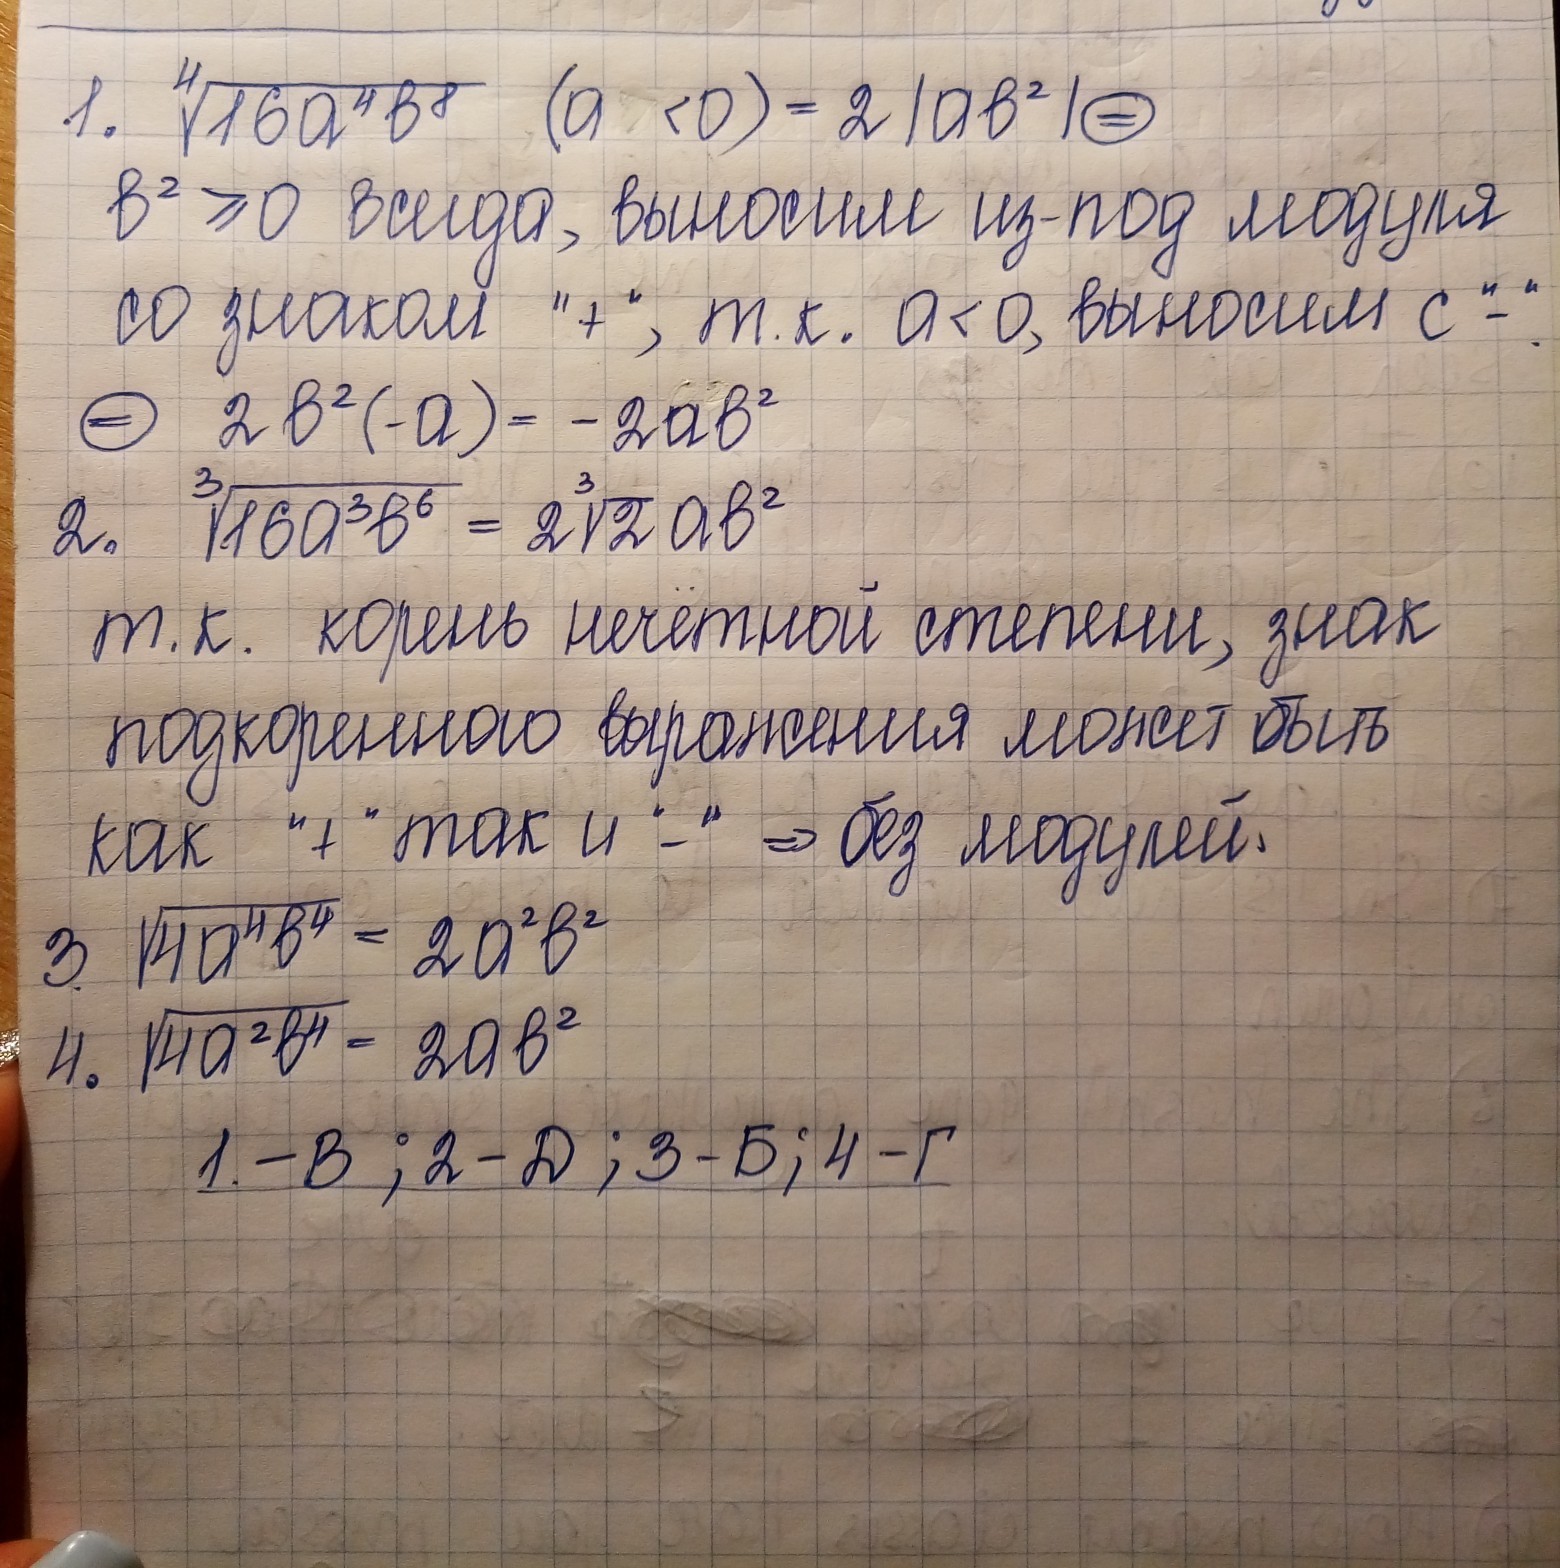 1. ⁴√16a⁴b⁸ (a <0) = 2|ab²| ⊜
b² ⩾ 0 всегда, выносим из-под модуля
со знаком "+", т.к. a<0, выносим с "-".
⊜ 2b²(-a) = -2ab²
2. ³√16a³b⁶ = 2³√2 ab²
т.к. корень нечётной степени, знак
подкоренного выражения может быть
как "+" так и "-" => без модулей.
3. √4a⁴b⁴ = 2a²b²
4. √4a²b⁴ = 2ab²
1. – В ; 2 – D ; 3 – Б; 4 – Г